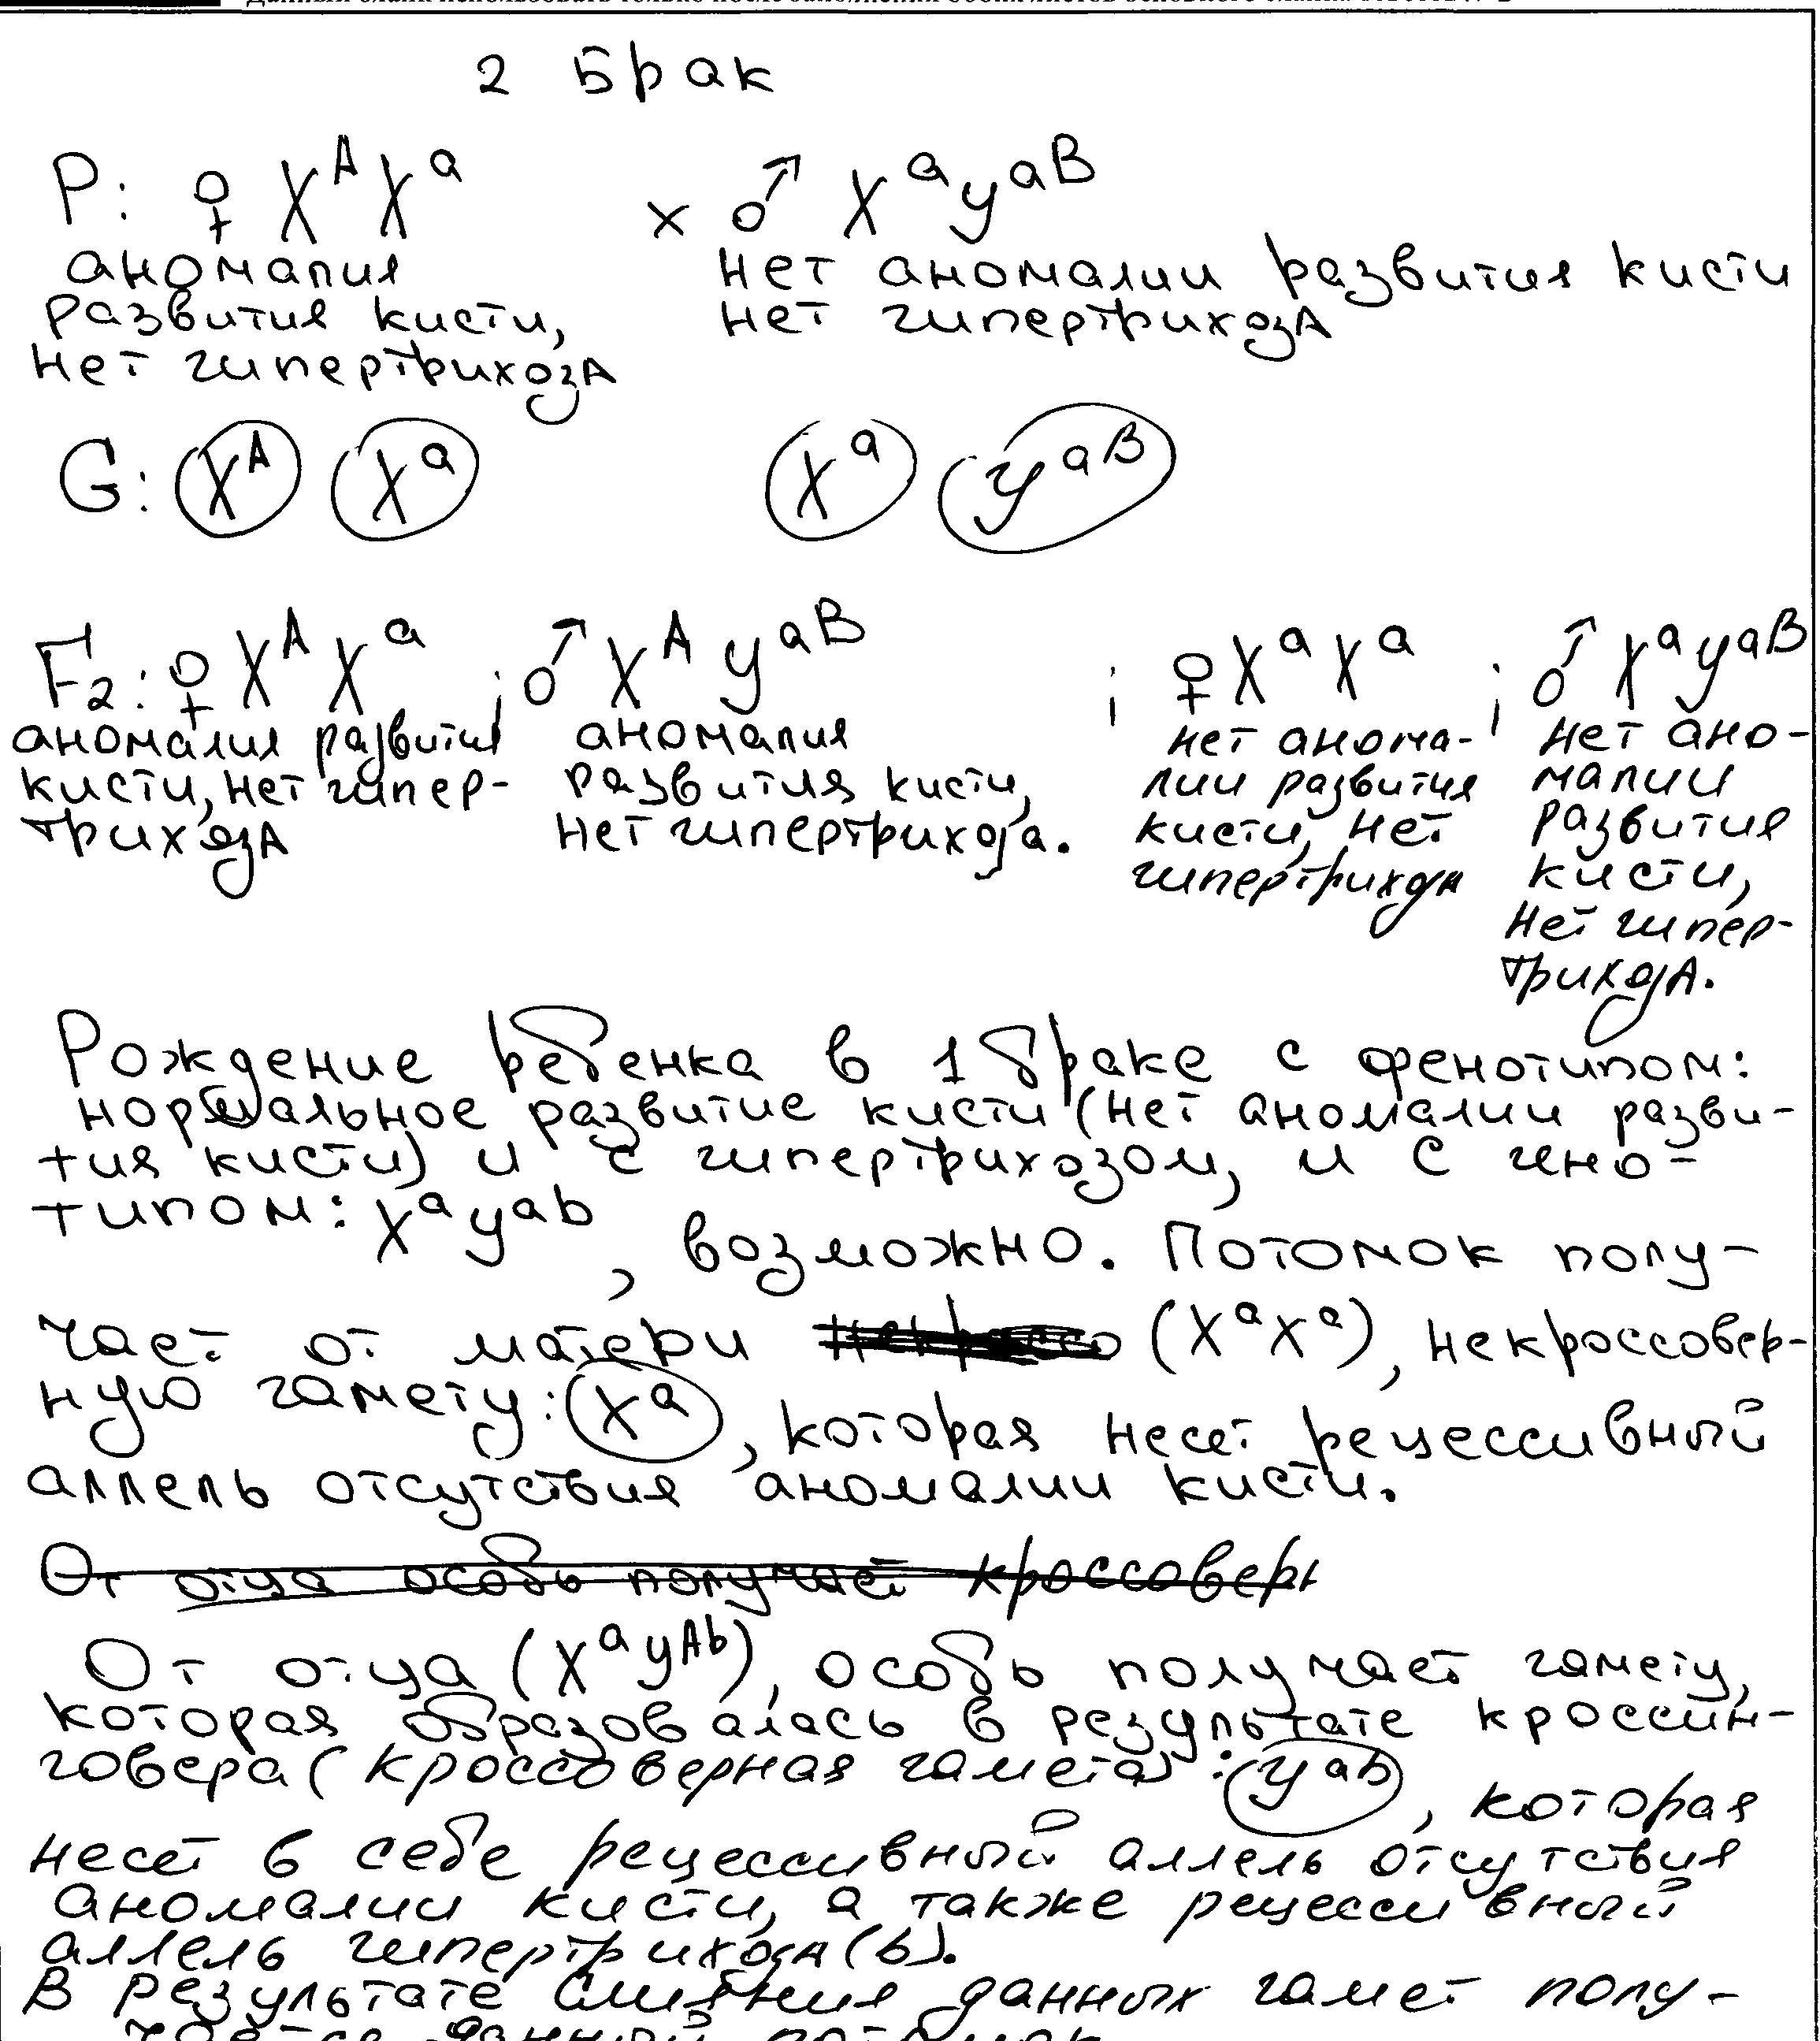 2 Брак
P: ♀ X^A X^a × ♂ X^a y^aB
аномалия нет аномалии развития кисти
развития кисти, нет гипертрихоза
нет гипертрихоза
G: X^A X^a X^a y^aB
F2: ♀ X^A X^a ; ♂ X^A y^aB ; ♀ X^a X^a ; ♂ X^a y^aB
аномалия развития аномалия нет анома- нет ано-
кисти, нет гипер- развития кисти, лии развития малии
трихоза нет гипертрихоза. кисти, нет развития
гипертрихоза кисти,
нет гипер-
трихоза.
Рождение ребенка в 1 браке с фенотипом:
нормальное развитие кисти (нет аномалии разви-
тия кисти) и с гипертрихозом, и с гено-
типом: X^a y^ab, возможно. Потомок полу-
чает от матери (X^a X^a), некроссовер-
ную гамету: X^a, которая несет рецессивный
аллель отсутствия аномалии кисти.
От отца особь получает кроссоверн
От отца (X^a y^Ab), особь получает гамету,
которая образовалась в результате кроссин-
говера (кроссоверная гамета): y^ab, которая
несет в себе рецессивный аллель отсутствия
аномалии кисти, а также рецессивный
аллель гипертрихоза (b).
В результате слияния данных гамет полу-